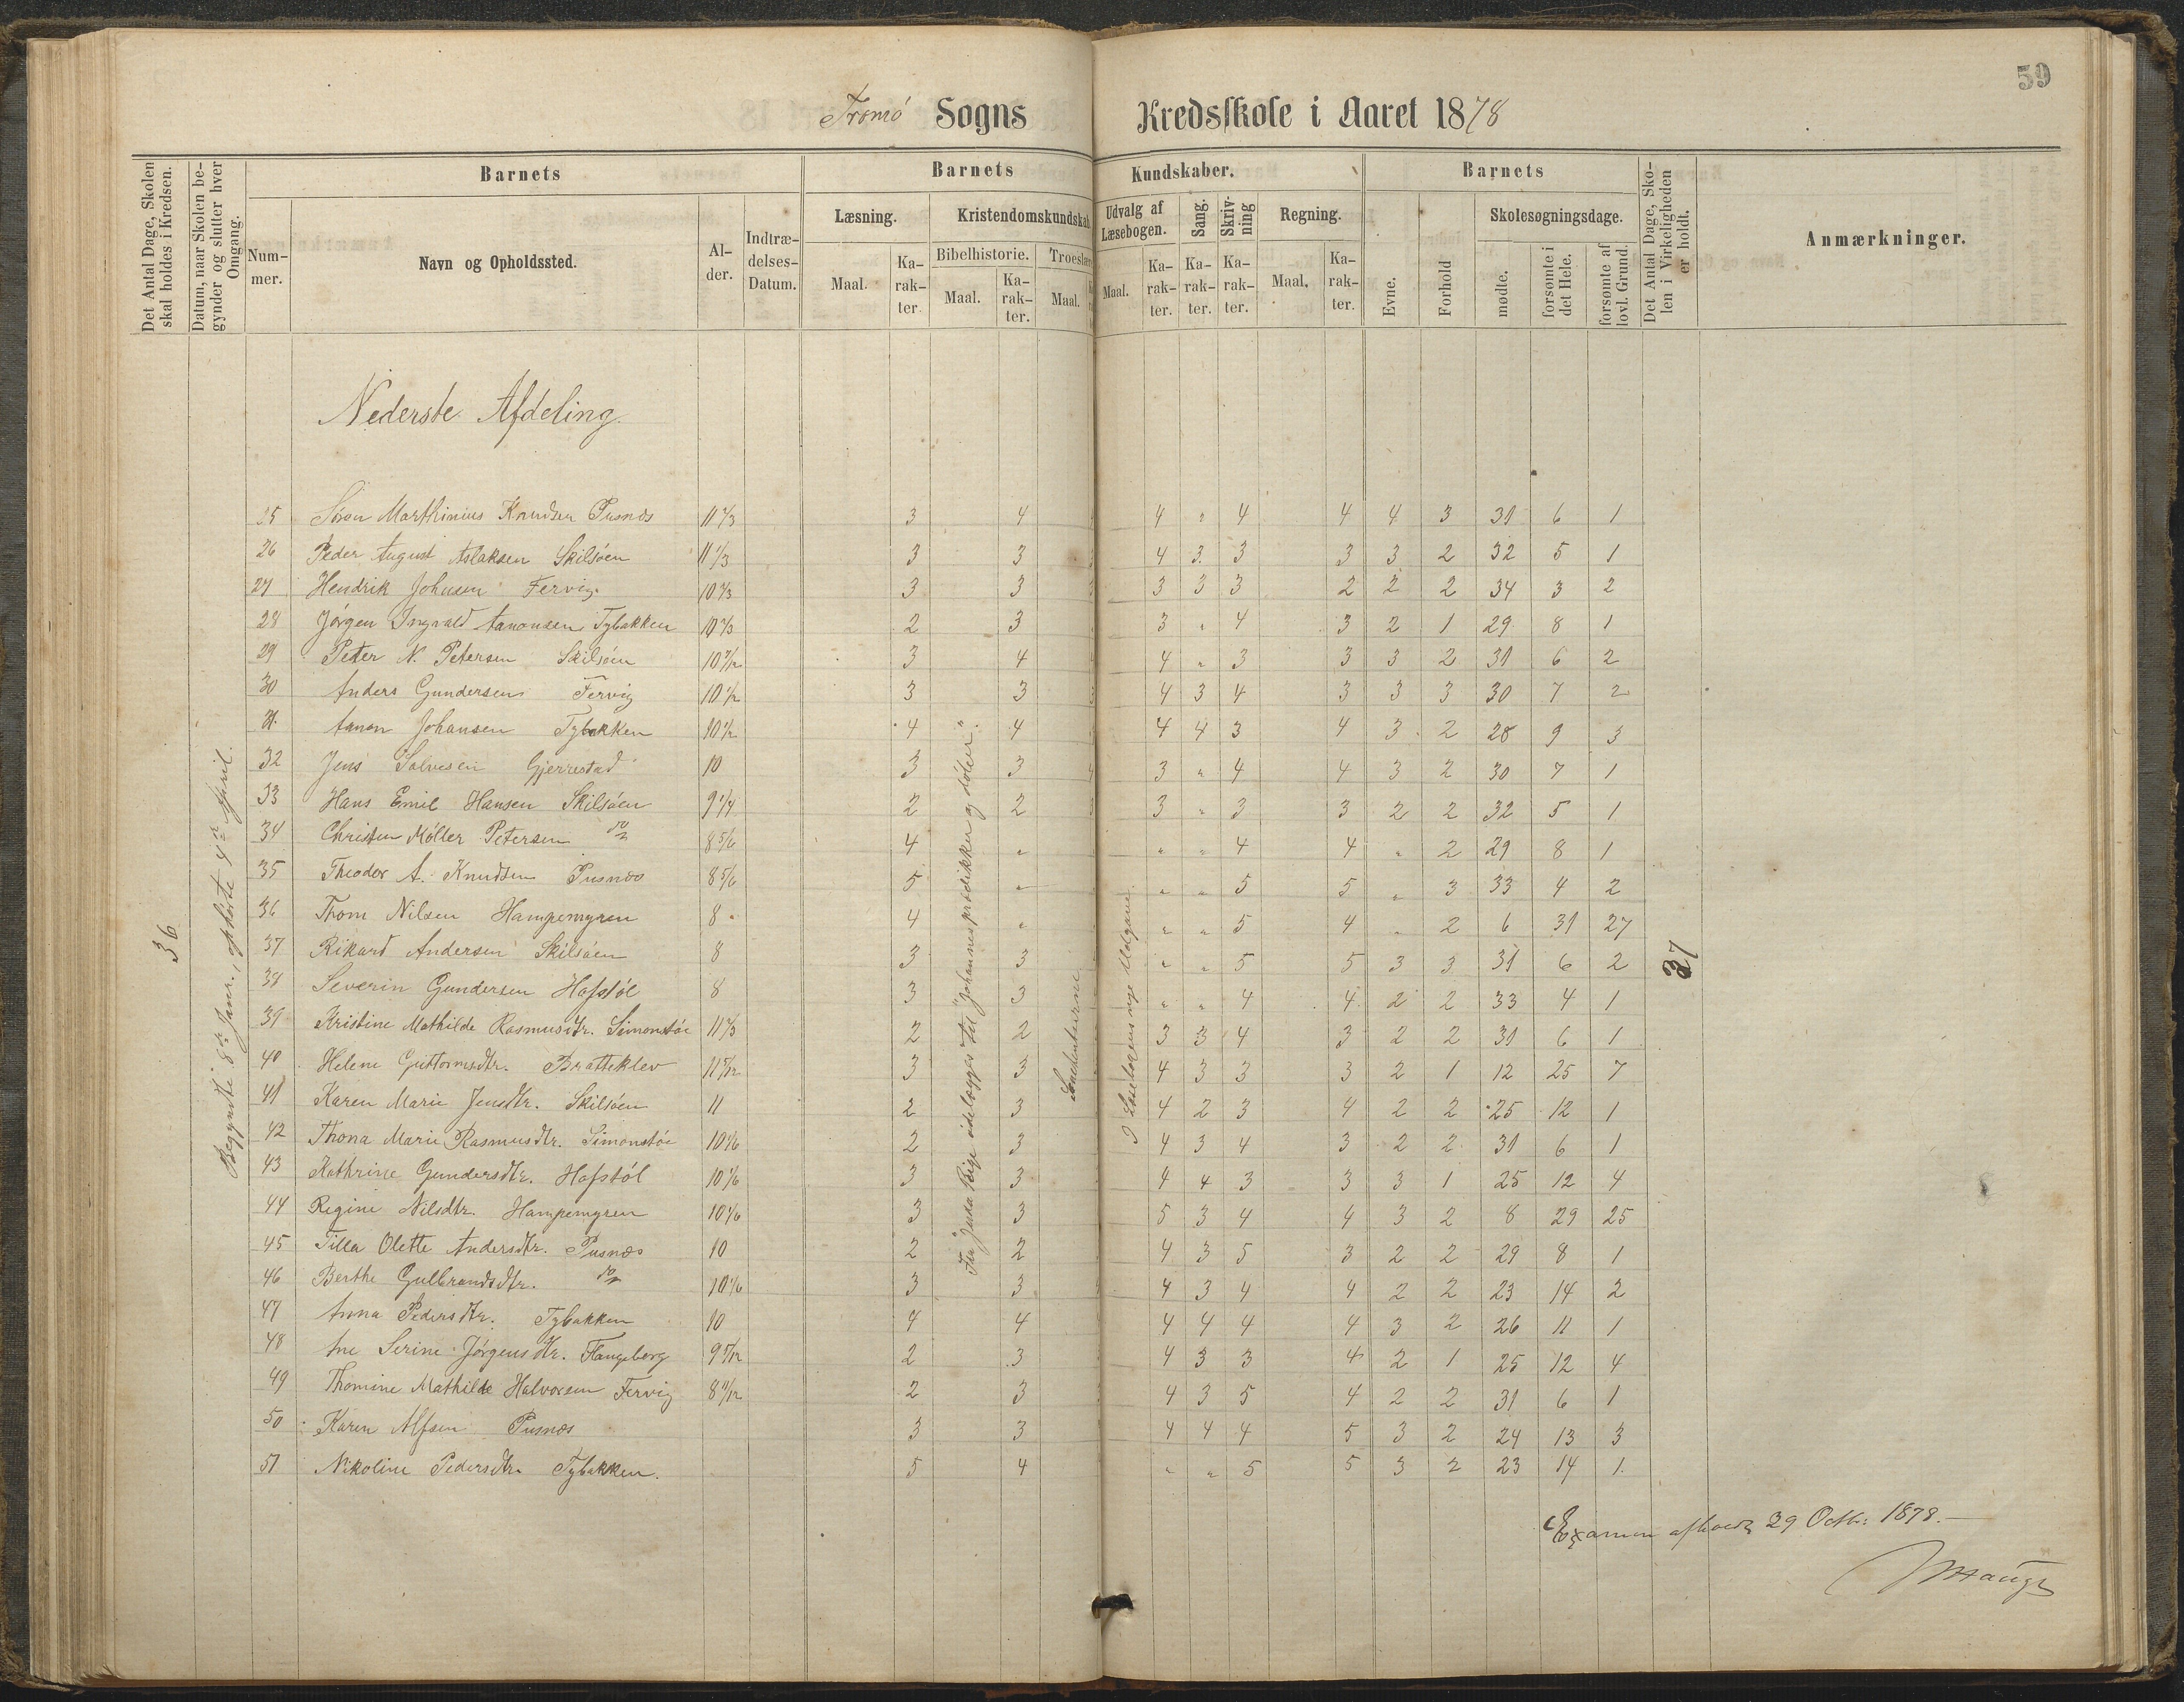 59
Tromö Sogns Kredsskole i Aaret 1878
Det Antal Dage, Skolen skal holdes i Kredsen.
Datum, naar Skolen begynder og slutter hver Omgang.
Barnets
Barnets Kundskaber.
Barnets
Det Antal Dage, Skolen i Virkeligheden er holdt.
Anmærkninger.
Nummer. Navn og Opholdssted. Alder. Indtrædelses-Datum.
Læsning. Kristendomskundskab Udvalg af Læsebogen. Sang. Skrivning Regning.
Evne. Forhold Skolesøgningsdage.
Bibelhistorie. Troeslær
Maal. Karakter. Maal. Karakter. Maal. Maal. Karakter. Karakter. Karakter. Maal. Karakter.
mødte. forsømte i det Hele. forsømte af lovl. Grund.
Nederste Afdeling.
36
Begyndte 8de Janr., ophørte 4de April.
Fra "Juda Rige ødelægges" til "Johannes prædikker og døber".
I Læsebogens nye Udgave.
37
25 Søren Marthinius Knudsen Pusnæs 11 2/3 3 4 4 " 4 4 4 3 31 6 1
26 Peder August Aslaksen Skilsøen 11 1/3 3 3 4 3 3 3 3 2 32 5 1
27 Hendrik Johnsen Fervig. 10 2/3 3 3 3 3 3 2 2 2 34 3 2
28 Jørgen Ingvald Aanonsen Tybakken 10 2/3 2 3 3 " 4 3 2 1 29 8 1
29 Peter N. Petersen Skilsøen 10 7/12 3 4 4 " 3 3 3 2 31 6 2
30 Anders Gundersen Fervig 10 1/2 3 3 4 3 4 3 3 3 30 7 2
31 Aanon Johansen Tybakken 10 1/2 4 4 4 4 3 4 3 2 28 9 3
32 Jens Salvesen Gjerrestad 10 3 3 3 " 4 4 3 2 30 7 1
33 Hans Emil Hansen Skilsøen 9 1/4 2 2 3 " 3 3 2 2 32 5 1
34 Christen Møller Petersen do 8 5/6 4 " " " 4 4 " 2 29 8 1
35 Theodor A. Knudsen Pusnæs 8 5/6 5 " " " 5 5 " 3 33 4 2
36 Thom Nilsen Hampemyren 8 4 " " " 5 4 " 2 6 31 27
37 Rikard Andersen Skilsøen 8 3 3 " " 5 5 3 3 31 6 2
38 Severin Gundersen Hofstøl 8 3 3 " " 4 4 2 2 33 4 1
39 Kristine Mathilde Rasmusdtr. Simonstøe 11 2/3 2 2 3 3 4 3 2 2 31 6 1
40 Helene Guttormsdtr. Bratteklev 11 5/12 3 3 4 3 3 3 2 1 12 25 7
41 Karen Marie Jensdtr. Skilsøen 11 2 3 4 2 3 4 2 2 25 12 1
42 Thona Marie Rasmusdtr. Simonstøe 10 1/6 2 3 4 3 4 3 2 2 31 6 1
43 Kathrine Gundersdtr. Hofstøl 10 1/6 3 3 4 4 3 3 3 1 25 12 4
44 Regine Nilsdtr. Hampemyren 10 1/6 3 3 5 3 4 4 3 2 8 29 25
45 Tilla Olette Andersdtr. Pusnæs 10 2 2 4 3 5 3 2 2 29 8 1
46 Berthe Gulbrandsdtr. do 10 1/6 3 3 4 3 4 4 2 2 23 14 2
47 Anna Pedersdtr. Tybakken 10 4 4 4 4 4 4 3 2 26 11 1
48 Ane Serine Jørgensdtr. Flangeborg 9 7/12 2 3 4 3 3 4 2 1 25 12 4
49 Thomine Mathilde Halvorsen Fervig 8 11/12 2 3 4 3 5 4 2 2 31 6 1
50 Karen Alfsen Pusnæs 3 3 4 4 4 5 3 2 24 13 3
51 Nikoline Pedersdtr. Tybakken. 5 4 " " 5 5 3 2 23 14 1.
Examen afholdt 29 Octbr. 1878.